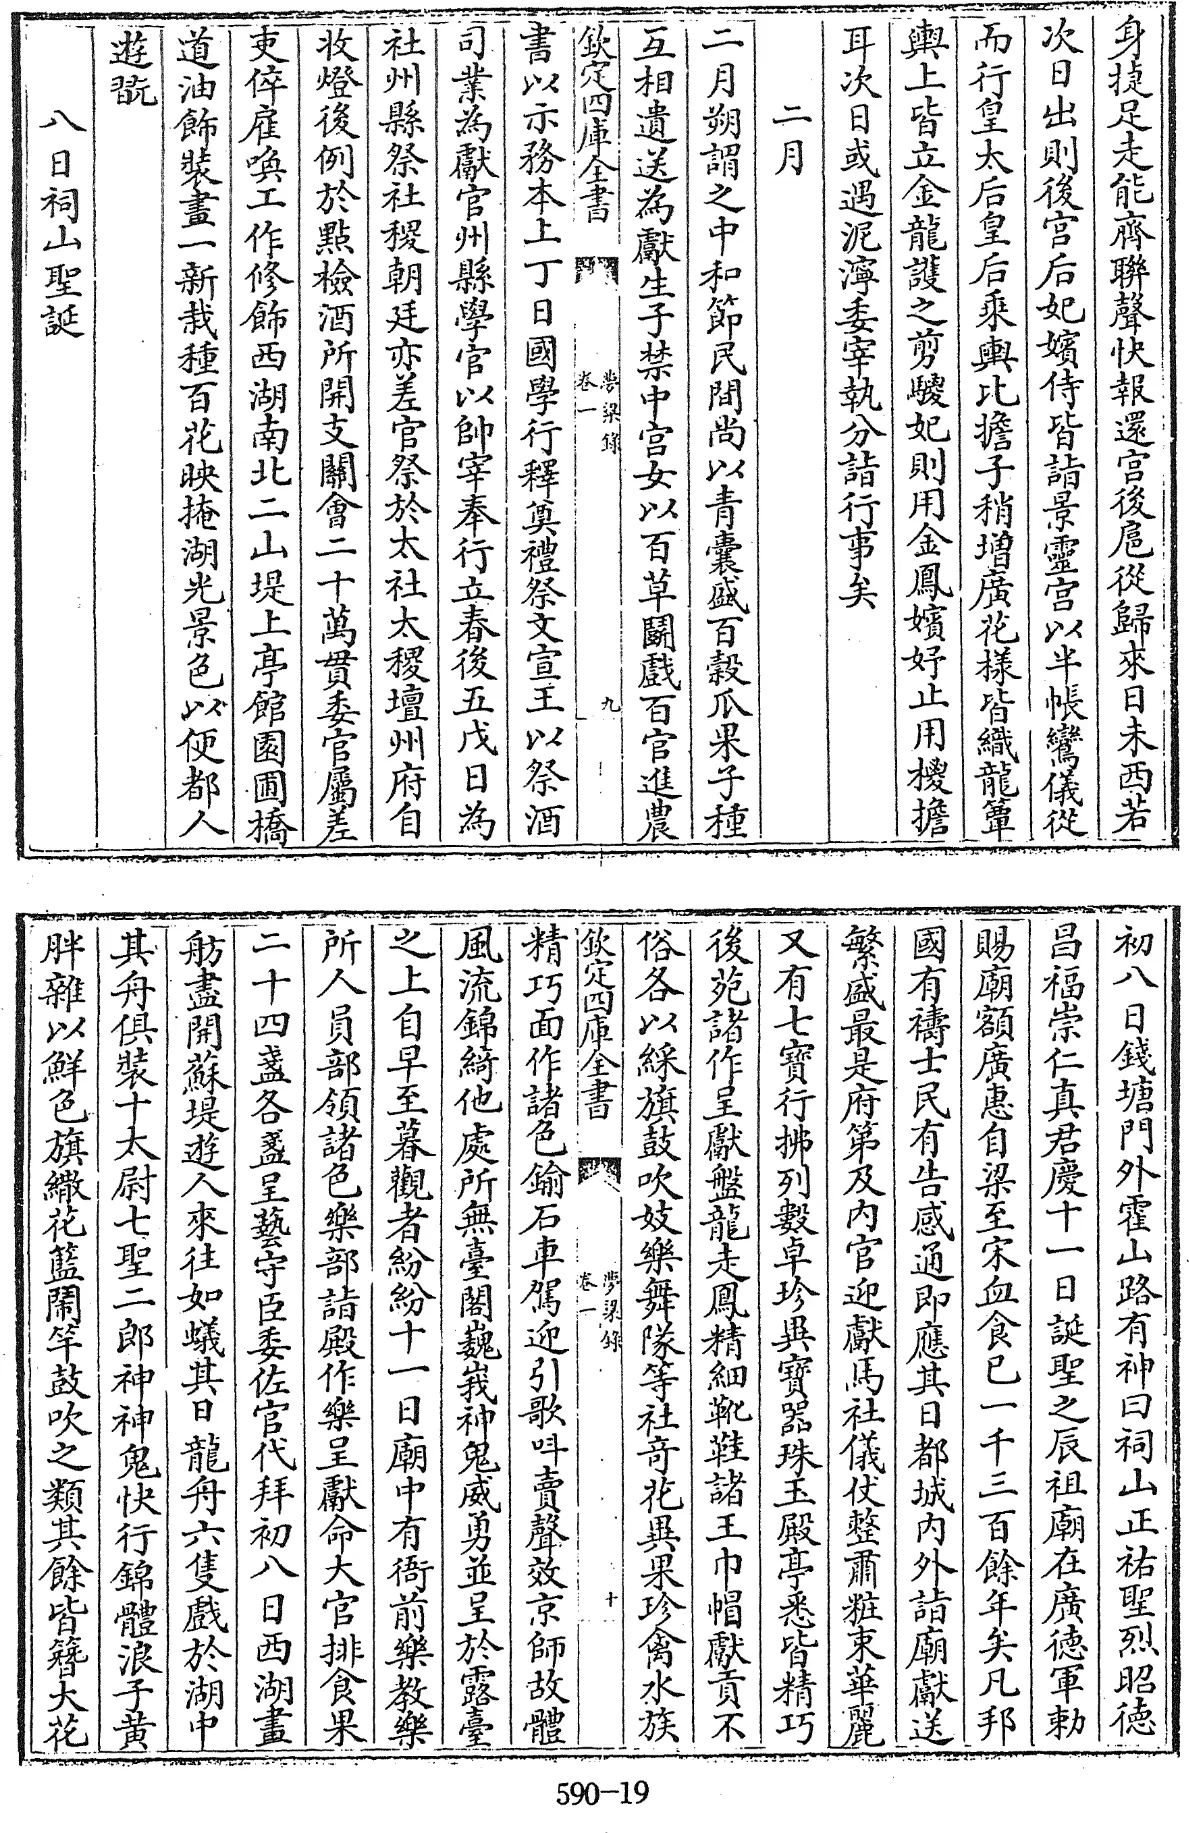 身㨗足走能齊聯聲快報還宫後扈從歸來日未西若
次日出則後宫后妃嬪侍皆詣景靈宫以半帳鸞儀從
而行皇太后皇后乘輿比擔子稍增廣花樣皆織龍簟
輿上皆立金龍護之剪騣妃則用金鳳嬪妤止用㯶擔
耳次日或遇泥濘委宰執分詣行事矣
二月
二月朔謂之中和節民間尚以青囊盛百穀瓜果子種
互相遺送為獻生子禁中宫女以百草鬬戲百官進農
欽定四庫全書
夢粱錄
卷一
九
書以示務本上丁日國學行釋奠禮祭文宣王以祭酒
司業為獻官州縣學官以帥宰奉行立春後五戊日為
社州縣祭社稷朝廷亦差官祭於太社太稷壇州府自
收燈後例於點檢酒所開支關會二十萬貫委官屬差
吏倅雇喚工作修飾西湖南北二山堤上亭館園圃橋
道油飾裝畫一新栽種百花映掩湖光景色以便都人
遊翫
八日祠山聖誕
初八日錢塘門外霍山路有神曰祠山正祐聖烈昭德
昌福崇仁真君慶十一日誕聖之辰祖廟在廣德軍勅
賜廟額廣惠自梁至宋血食已一千三百餘年矣凡邦
國有禱士民有告感通即應其日都城内外詣廟獻送
繁盛最是府第及内官迎獻馬社儀仗整肅粧束華麗
又有七寶行排列數卓珍異寶器珠玉殿亭悉皆精巧
後苑諸作呈獻盤龍走鳳精細靴鞋諸王巾帽獻貢不
俗各以綵旗鼓吹妓樂舞隊等社奇花異果珍禽水族
欽定四庫全書
夢粱錄
卷一
十
精巧面作諸色鍮石車駕迎引歌呌賣聲效京師故體
風流錦綺他處所無臺閣巍峩神鬼威勇並呈於露臺
之上自早至暮觀者紛紛十一日廟中有衙前樂教樂
所人員部領諸色樂部詣殿作樂呈獻命大官排食果
二十四盞各盞呈藝守臣委佐官代拜初八日西湖畫
舫盡開蘇堤遊人來往如蟻其日龍舟六隻戲於湖中
其舟俱裝十太尉七聖二郎神神鬼快行錦體浪子黄
胖雜以鮮色旗繖花籃閙竿鼓吹之類其餘皆簪大花
590-19